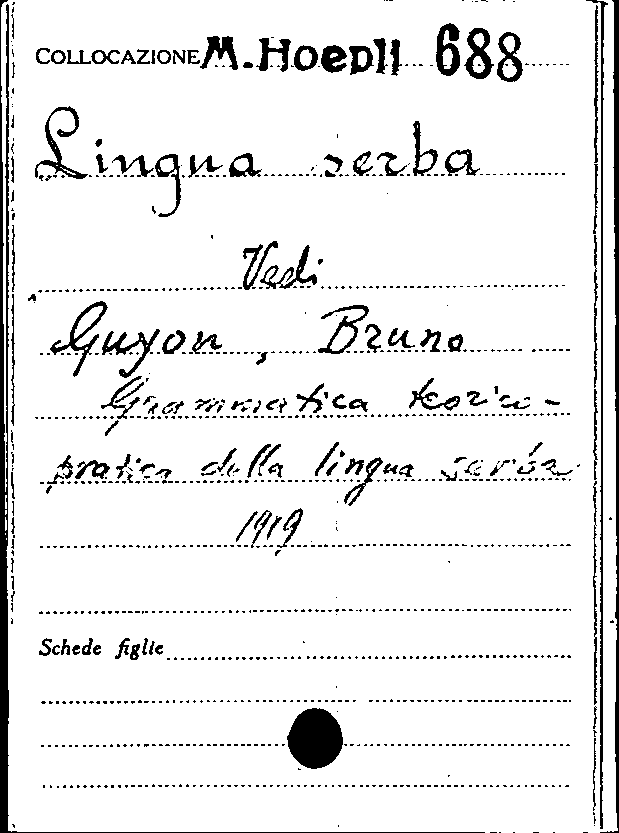 COLLOCAZIONE M. Hoepli 688
Lingua serba
Vedi
Guyon, Bruno
Grammatica teorico-
pratica della lingua serba
1919
Schede figlie